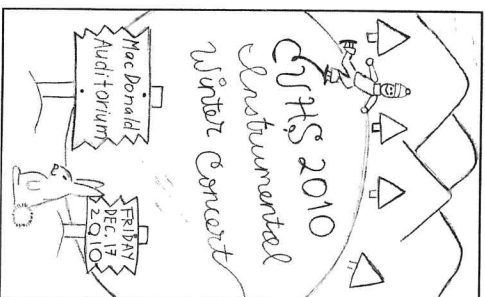 CVHS 2010
Instrumental
Winter Concert
MacDonald
Auditorium
FRIDAY
DEC. 17
2010